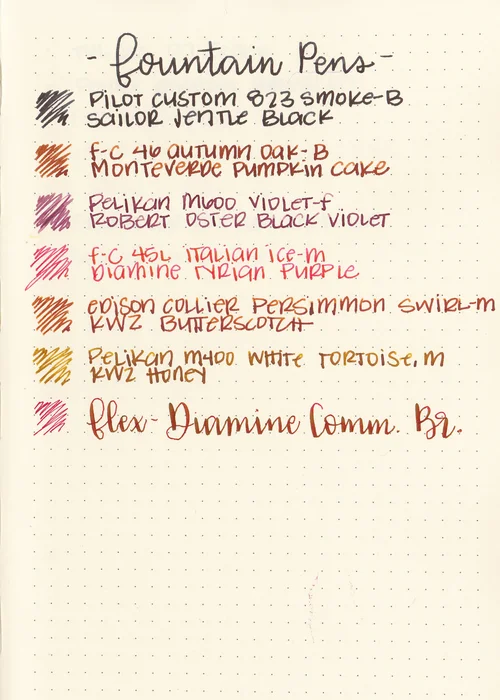 - fountain Pens -
PILOT CUSTOM 823 SMOKE-B
SAILOR JENTLE BLACK
F-C 46 autumn oak-B
MONTEVERDE PUMPKIN CAKE
PELIKAN M600 VIOLET-F
ROBERT OSTER BLACK VIOLET
F-C 45L ITALIAN ICE-M
DIAMINE TYRIAN PURPLE
EDISON COLLIER PERSIMMON SWIRL-M
KWZ BUTTERSCOTCH
PELIKAN M400 WHITE TORTOISE, M
KWZ HONEY
flex- Diamine Comm. Br.